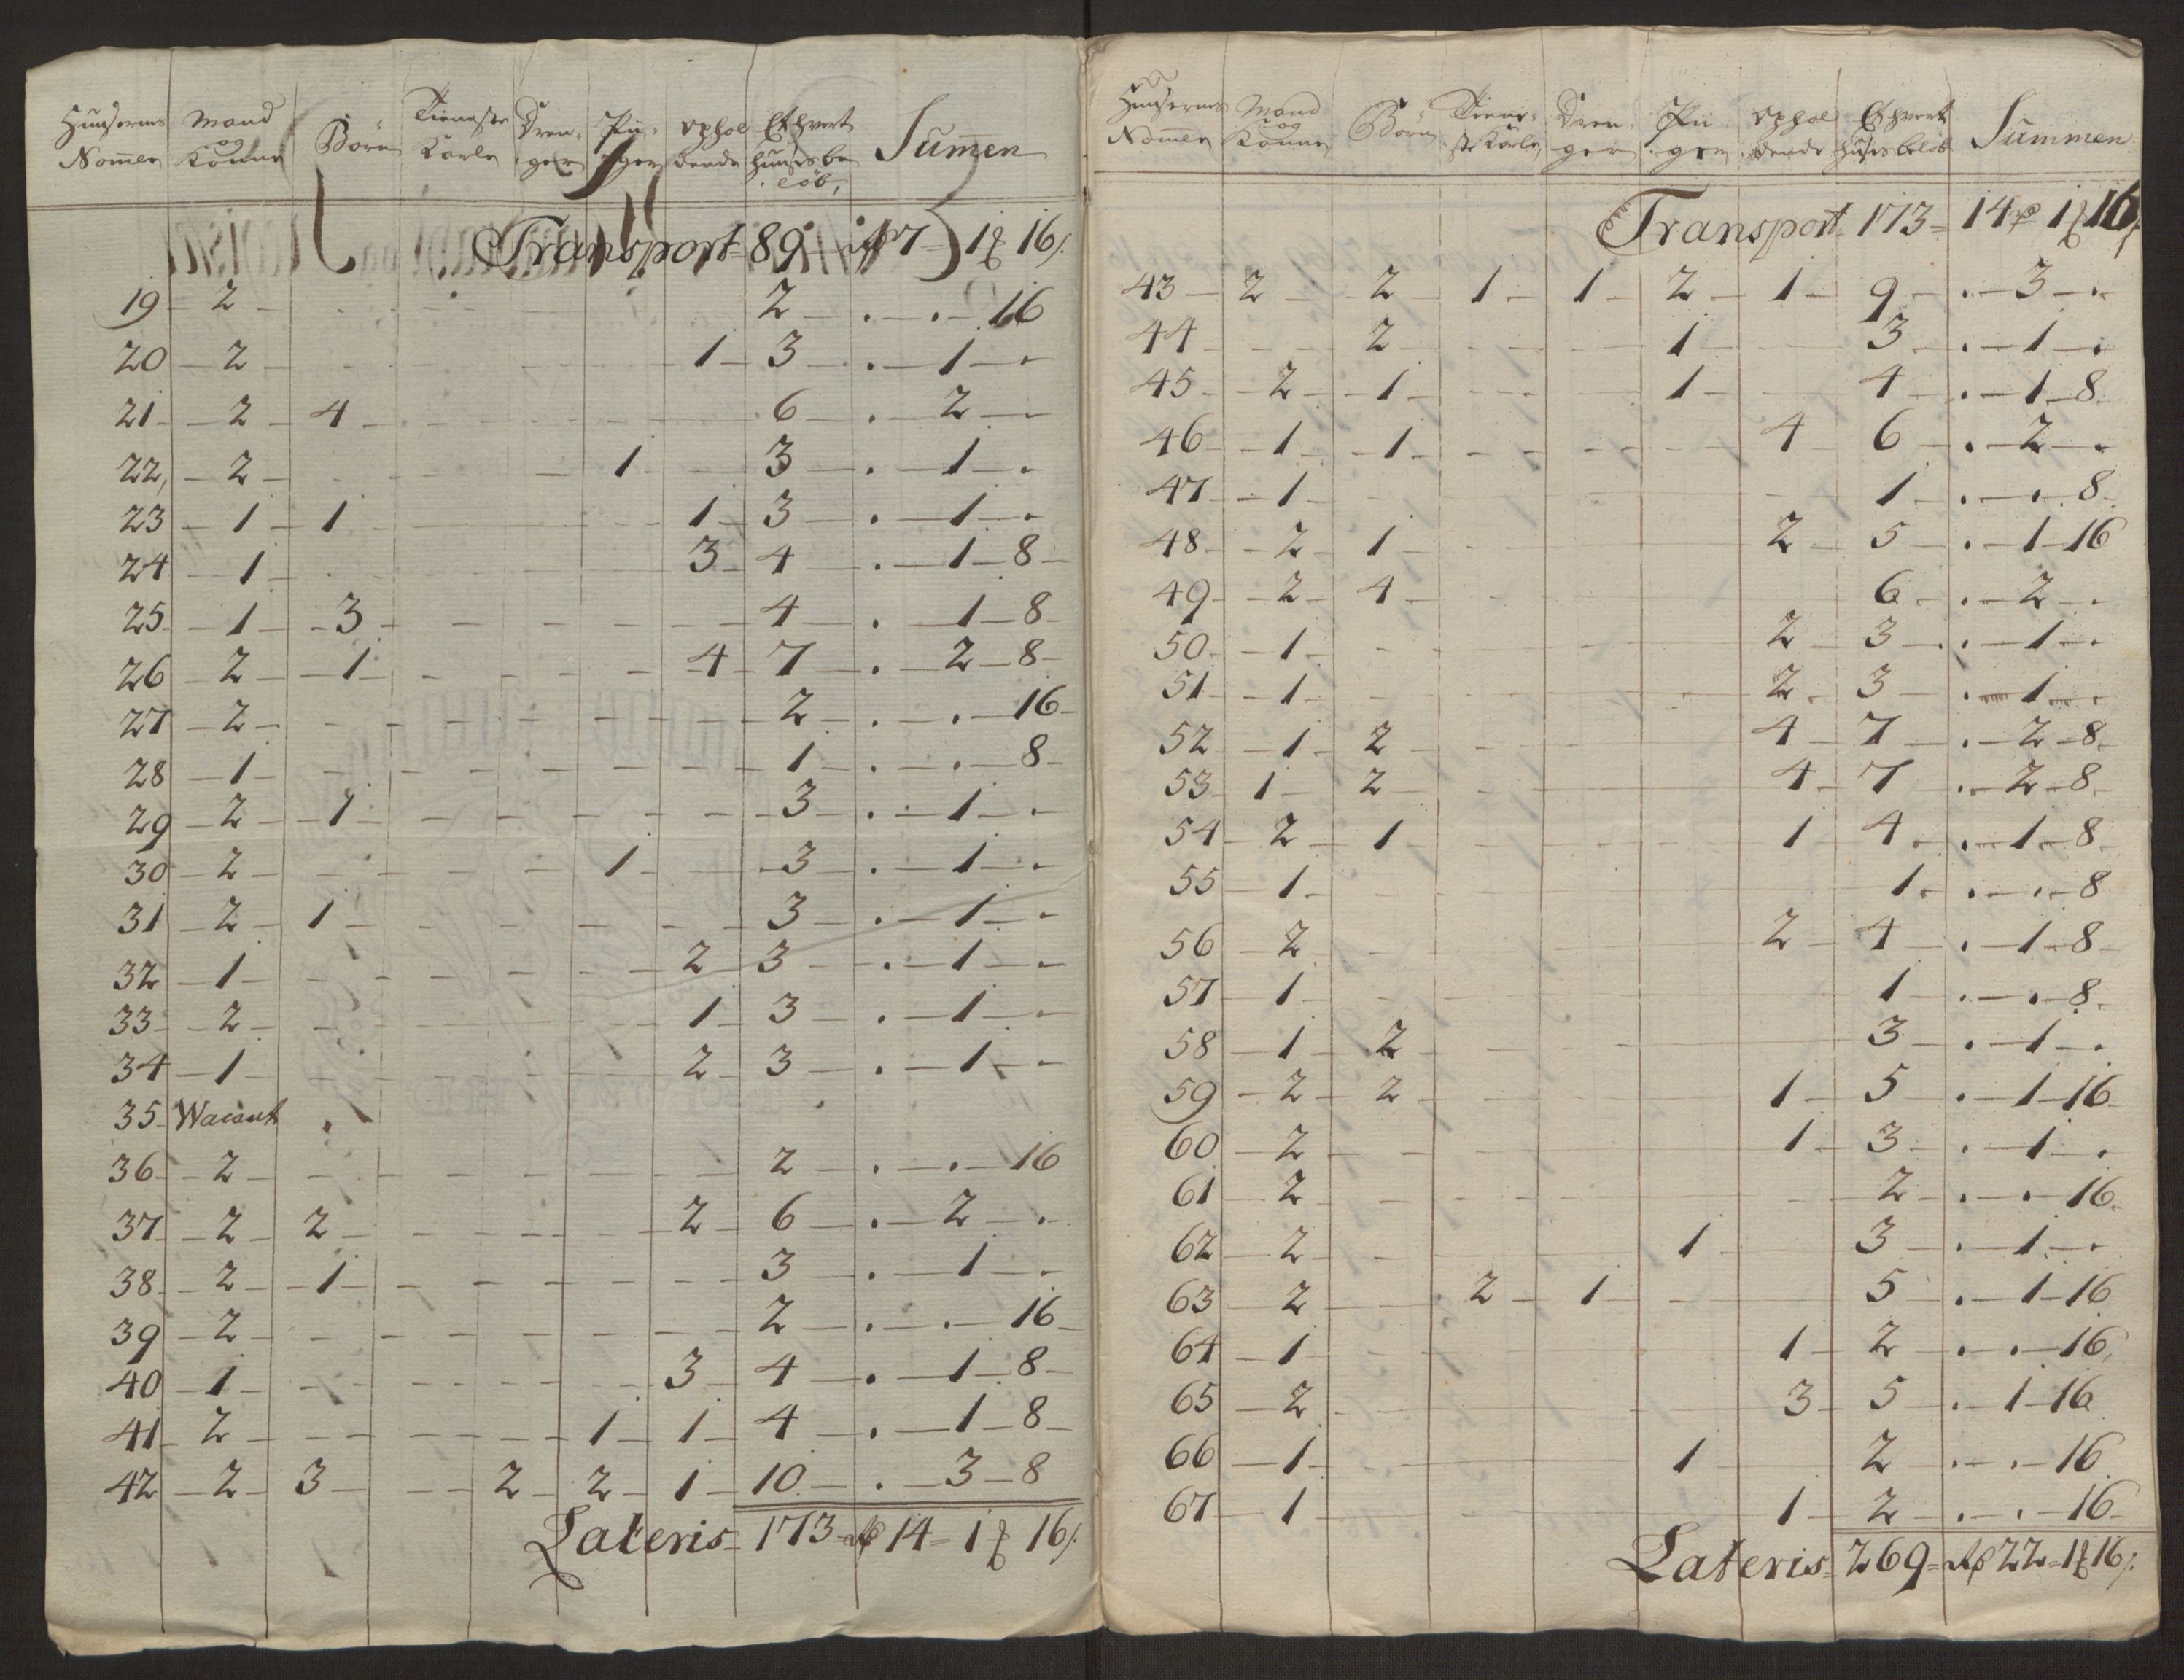 Huusernes Mand Börn Tieneste Dren- Pii- ophol Ethvert Sumen
Nomer og Konne Karle ger ger dende huuses be
löb,
Transport 89 7 1 16
19 2 2 . . 16
20 2 1 3 . 1 .
21 2 4 6 . 2
22, 2 1 3 . 1 .
23 1 1 1 3 . 1 .
24 1 3 4 . 1 8
25 1 3 4 . 1 8
26 2 1 4 7 . 2 8
27 2 2 . . 16
28 1 1 . . 8
29 2 1 3 . 1 .
30 2 1 3 . 1 .
31 2 1 3 . 1 .
32 1 2 3 . 1 .
33 2 1 3 . 1 .
34 1 2 3 . 1 .
35 Wacant
36 2 2 . . 16
37 2 2 2 6 . 2 .
38 2 1 3 . 1 .
39 2 2 . . 16
40 1 3 4 . 1 8
41 2 1 1 4 . 1 8
42 2 3 2 2 1 10 . 3 8
Lateris 173 14 1 16
Huusernes Mand Börn Tiene- Dren- Pii ophol Ethvert Summen
Nomer og Konne ste Karle ger ger dende huses belöb
Transport 173 14 1 16
43 2 2 1 1 2 1 9 . 3 .
44 2 1 3 . 1 .
45 2 1 1 4 . 1 8
46 1 1 4 6 . 2 .
47 1 1 . . 8
48 2 1 2 5 . 1 16
49 2 4 6 . 2 .
50 1 2 3 . 1 .
51 1 2 3 . 1 .
52 1 2 4 7 . 2 8
53 1 2 4 7 . 2 8
54 2 1 1 4 . 1 8
55 1 1 . . 8
56 2 2 4 . 1 8
57 1 1 . . 8
58 1 2 3 . 1 .
59 2 2 1 5 . 1 16
60 2 1 3 . 1 .
61 2 2 . . 16
62 2 1 3 . 1 .
63 2 2 1 5 . 1 16
64 1 1 2 . . 16
65 2 3 5 . 1 16
66 1 1 2 . . 16
67 1 1 2 . . 16
Lateris 269 22 1 16